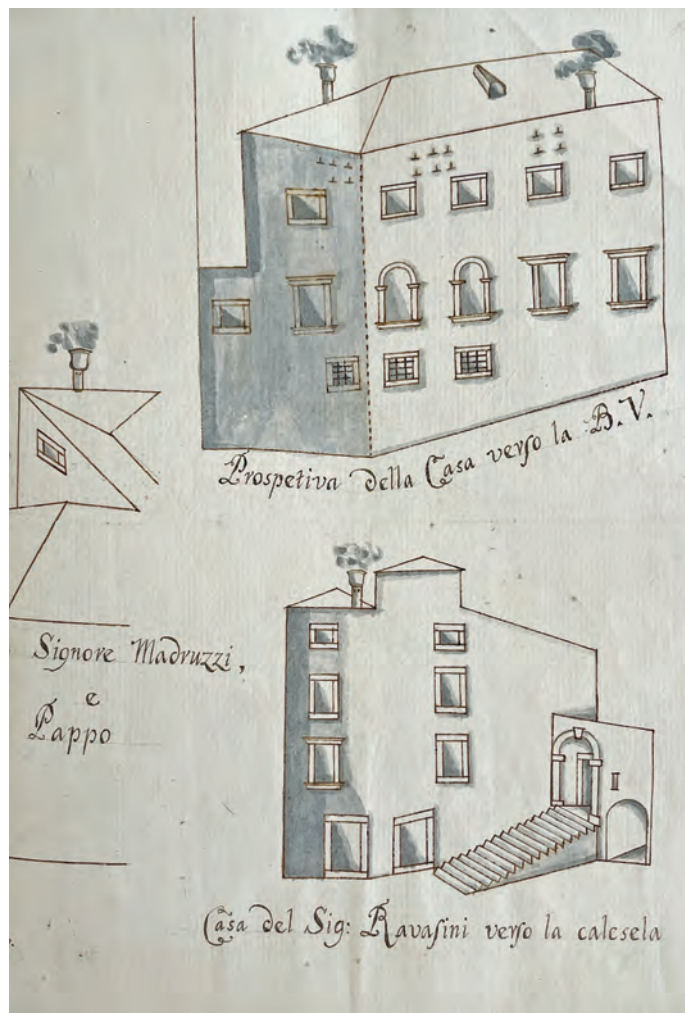 Prospetiva della Casa verſo la B.V.
Signore Madruzzi,
e
Pappo
Casa del Sig: Ravaſini verſo la calcsela